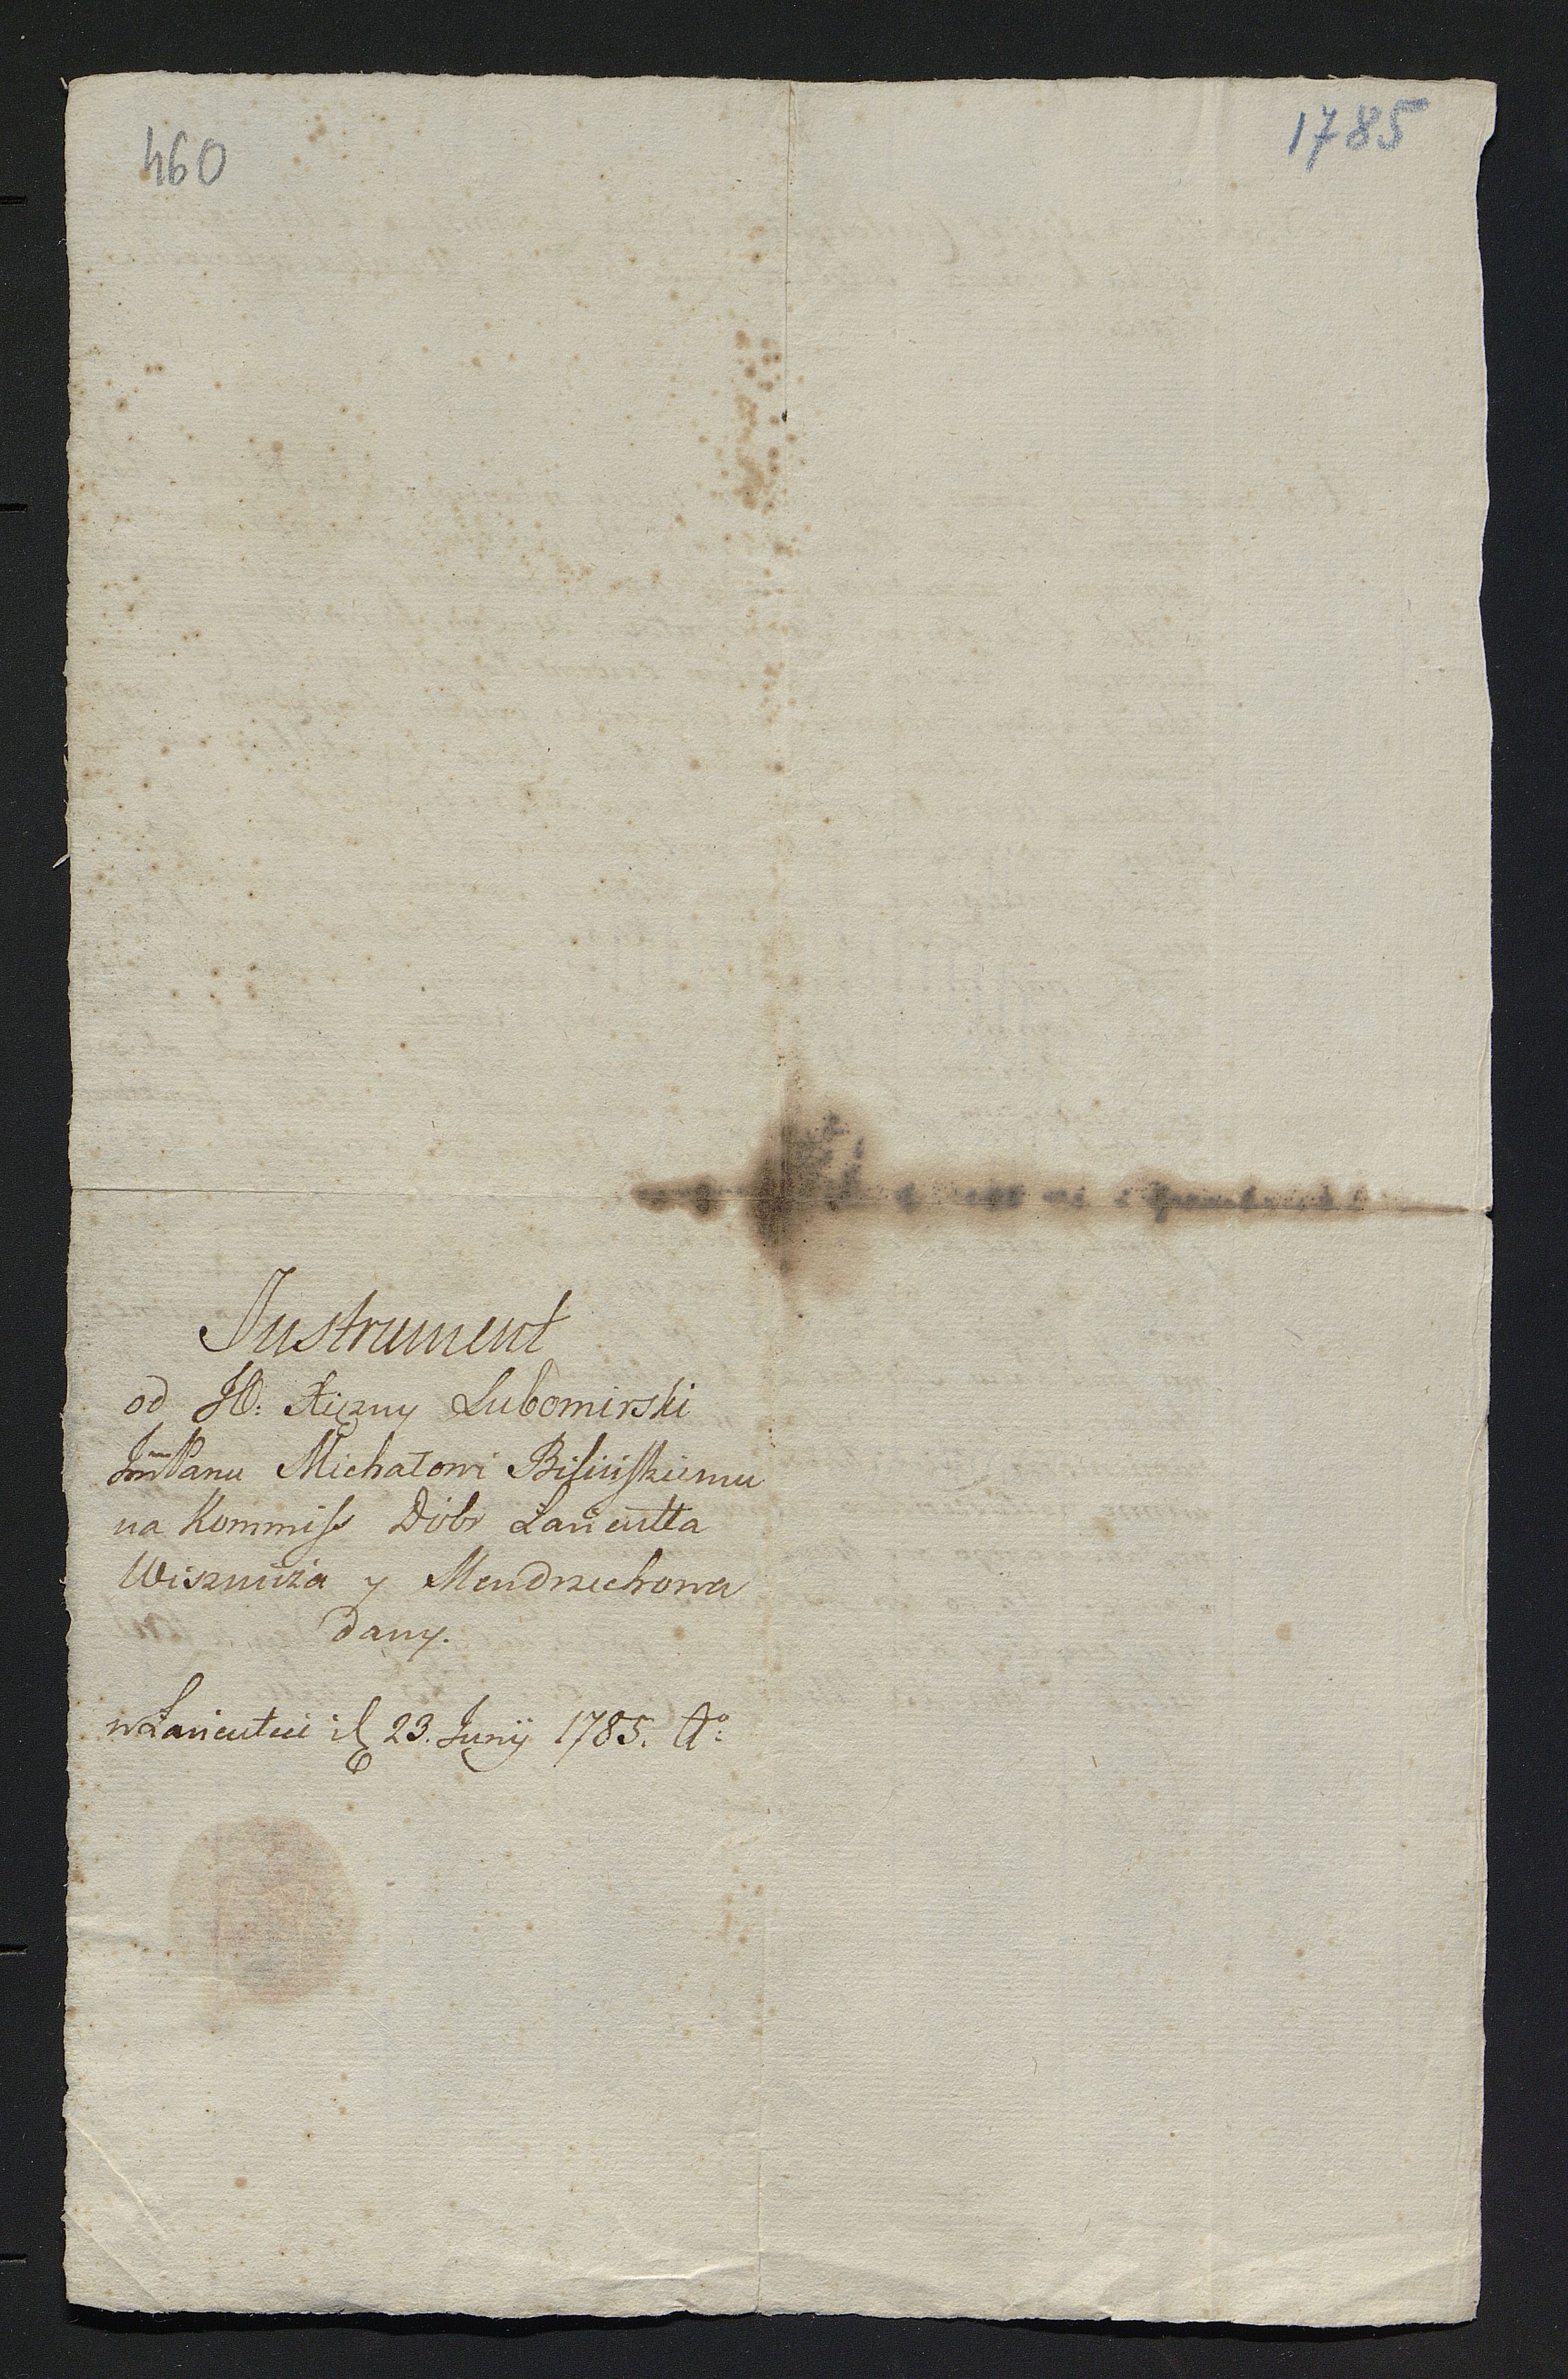 460
1785
Instrument
od JO: Xiężny Lubomirski
JmPanu Michałowi Bisińskiemu
na Kommiss Dóbr Łańcutta
Wisznicza y Mendrzechowa
dany.
w Łańcutcie d 23. Junij 1785. Ao: